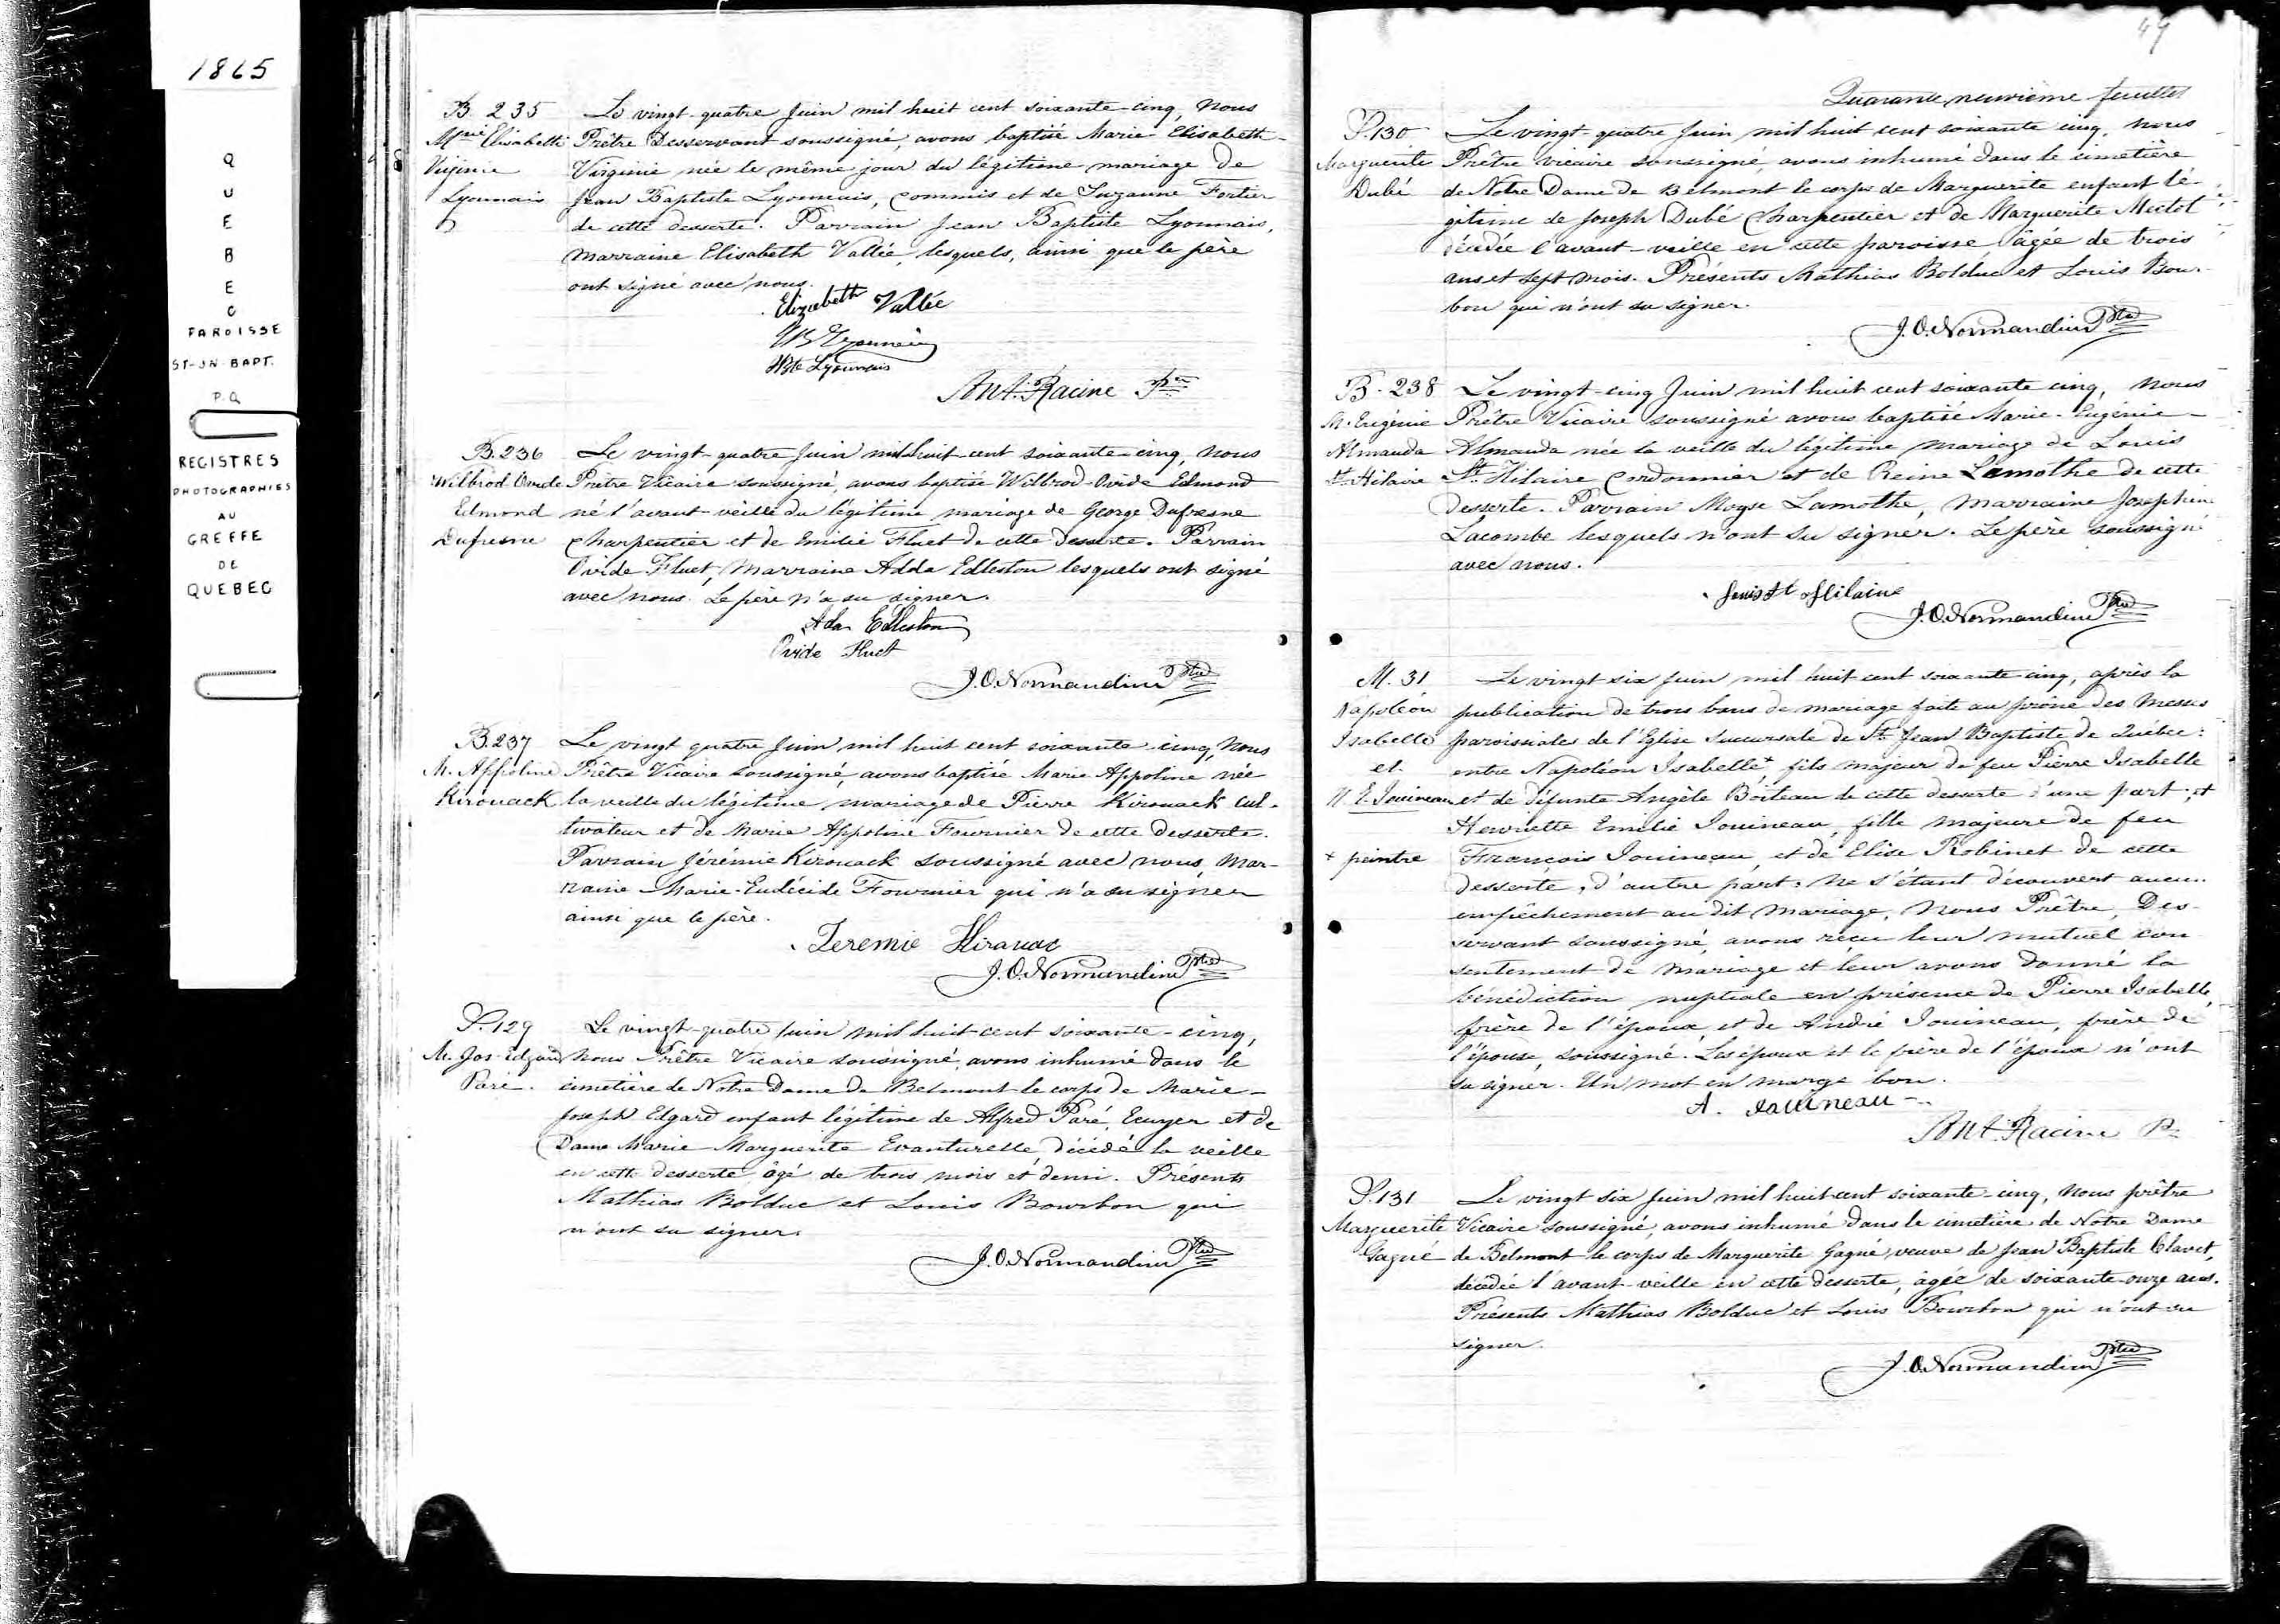 1865
Q
U
E
B
E
C
PAROISSE
ST-JN-BAPT.
P.Q
REGISTRES
PHOTOGRAPHIES
AU
GREFFE
DE
QUEBEC
B. 235 Le vingt-quatre Juin mil huit cent soixante-cinq, Nous
Mie Elisabeth Prêtre Desservant soussigné, avons baptisé Marie-Elisabeth-
Virginie Virginie née le même jour du légitime mariage de
Lyonnais Jean Baptiste Lyonnais, Commis et de Suzanne Fortier
de cette desserte. Parrain Jean Baptiste Lyonnais,
Marraine Elisabeth Vallée, lesquels, ainsi que le père
ont signé avec nous.
Elizabeth Vallée
JB Lyonnais
JBte Lyonnais
Ant. Racine Ptre
B. 236 Le vingt-quatre Juin mil huit cent soixante-cinq, Nous
Wilbrod Ovide Prêtre Vicaire soussigné, avons baptisé Wilbrod-Ovide Edmond
Edmond né l'avant-veille du légitime mariage de George Dufresne
Dufresne Charpentier et de Emilie Fluet de cette Desserte. Parrain
Ovide Fluet, Marraine Adda Edleston lesquels ont signé
avec nous. Le père n'a su signer.
Ada Edleston
Ovide Fluet
J.O. Normandin Ptre
B. 237 Le vingt quatre Juin mil huit cent soixante-cinq, Nous
M. Appoline Prêtre Vicaire soussigné, avons baptisé Marie Appoline née
Kirouack la veille du légitime mariage de Pierre Kirouack cul-
tivateur et de Marie Appoline Fournier de cette desserte.
Parrain Jérémie Kirouack soussigné avec nous, Mar-
raine Marie-Eudécide Fournier qui n'a su signer
ainsi que le père.
Jeremie Kirouac
J.O. Normandin Ptre
S. 129 Le vingt-quatre Juin mil huit cent soixante-cinq,
M. Jos. Edgard Nous Prêtre Vicaire soussigné, avons inhumé dans le
Paré. cimetière de Notre Dame de Belmont le corps de Marie-
Joseph Edgard enfant légitime de Alfred Paré, Ecuyer et de
Dame Marie Marguerite Evanturelle, décédé la veille
en cette desserte âgé de trois mois et demi. Présents
Mathias Bolduc et Louis Bourbon qui
n'ont su signer.
J.O. Normandin Ptre
49
Quarante neuvième feuillet
S. 130 Le vingt-quatre Juin mil huit cent soixante cinq, nous
Marguerite Prêtre vicaire soussigné, avons inhumé dans le cimetière
Dubé de Notre Dame de Belmont le corps de Marguerite enfant lé-
gitime de Joseph Dubé Charpentier et de Marguerite
décédée l'avant-veille en cette paroisse, âgée de trois
ans et sept mois. Présents Mathias Bolduc et Louis Bour-
bon qui n'ont su signer.
J.O. Normandin Ptre
B. 238 Le vingt-cinq Juin mil huit cent soixante cinq, Nous
M. Eugénie Prêtre Vicaire soussigné avons baptisé Marie-Eugénie-
Almanda Almanda née la veille du légitime mariage de Louis
St. Hilaire St. Hilaire Cordonnier et de Reine Lamothe de cette
desserte. Parrain Moyse Lamothe, Marraine Josephine
Lacombe lesquels n'ont su signer. Le père soussigné
avec nous.
Louis St Hilaire
J.O. Normandin Ptre
M. 31 Le vingt six Juin mil huit cent soixante cinq, après la
Napoléon publication de trois bans de mariage faite au prône des Messes
Isabelle paroissiales de l'Eglise Succursale de St. Jean Baptiste de Québec:
et entre Napoléon Isabelle+, fils majeur de feu Pierre Isabelle
H. E. Jouineau et de défunte Angèle Boiteau de cette desserte d'une part; et
Henriette Emilie Jouineau, fille majeure de feu
+ peintre François Jouineau, et de Elise Robinet de cette
desserte, d'autre part: Ne s'étant découvert aucun
empêchement au dit Mariage, Nous Prêtre, Des-
servant soussigné, avons reçu leur mutuel con
sentement de mariage et leur avons donné la
bénédiction nuptiale en présence de Pierre Isabelle,
frère de l'époux, et de André Jouineau, frère de
l'épouse, soussigné. Les époux et le frère de l'époux n'ont
su signer. Un mot en marge bon.
A. Jouineau
Ant. Racine P.
S. 131 Le vingt six Juin mil huit cent soixante-cinq, Nous prêtre
Marguerite Vicaire soussigné, avons inhumé dans le cimetière de Notre Dame
Gagné de Belmont le corps de Marguerite Gagné, veuve de Jean Baptiste Clavet,
décédée l'avant-veille en cette desserte, âgée de soixante-onze ans.
Présents Mathias Bolduc et Louis Bourbon qui n'ont su
signer.
J.O. Normandin Ptre